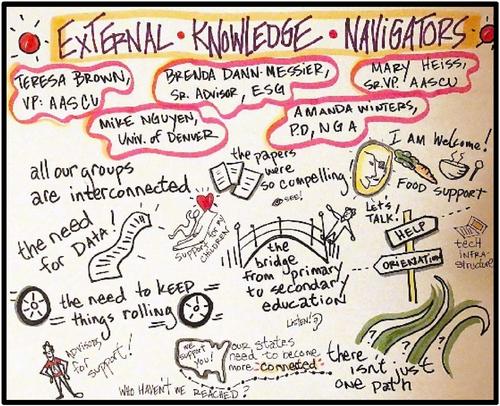 EXTERNAL • KNOWLEDGE • NAVIGATORS
TERESA BROWN,
VP: AASCU
BRENDA DANN-MESSIER,
SR. ADVISOR, ESG
MARY HEISS,
SR. VP: AASCU
MIKE NGUYEN,
UNIV. OF DENVER
AMANDA WINTERS,
P.D, NGA
all our groups
are interconnected
the papers
were
so compelling
see!
I AM Welcome!
FOOD SUPPORT
the need
for DATA!
SUPPORT for my
CHILDREN
the
bridge
from primary
to secondary
education
LET'S
TALK!
HELP
ORIENTATION
tech
INFRA-
structure
the need to KEEP
things rolling
Listen!
ADVISORS
for support!
we
support
you!
our states
need to become
more connected
WHO HAVEN'T WE REACHED?
there
isn't just
one path
? ? ? ?